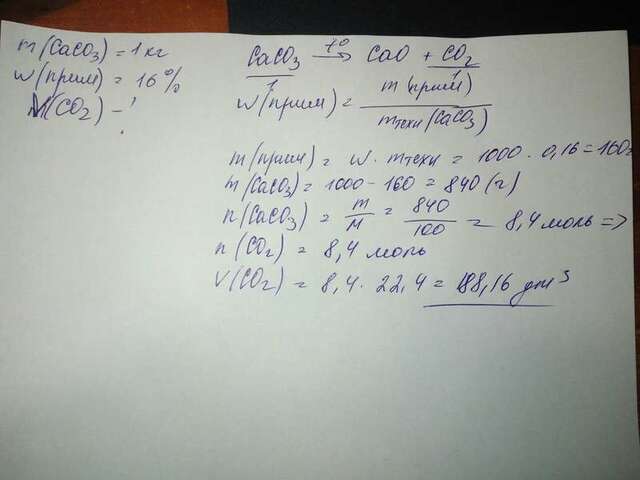 m(CaCO₃) = 1 кг
w(прим) = 16%
V(CO₂) - ?
CaCO₃ t° → CaO + CO₂
1 1
w(прим) = m(прим) / mтехн(CaCO₃)
m(прим) = w · mтехн = 1000 · 0,16 = 160г
m(CaCO₃) = 1000 - 160 = 840 (г)
n(CaCO₃) = m/M = 840/100 = 8,4 моль =>
n(CO₂) = 8,4 моль
V(CO₂) = 8,4 · 22,4 = 188,16 дм³